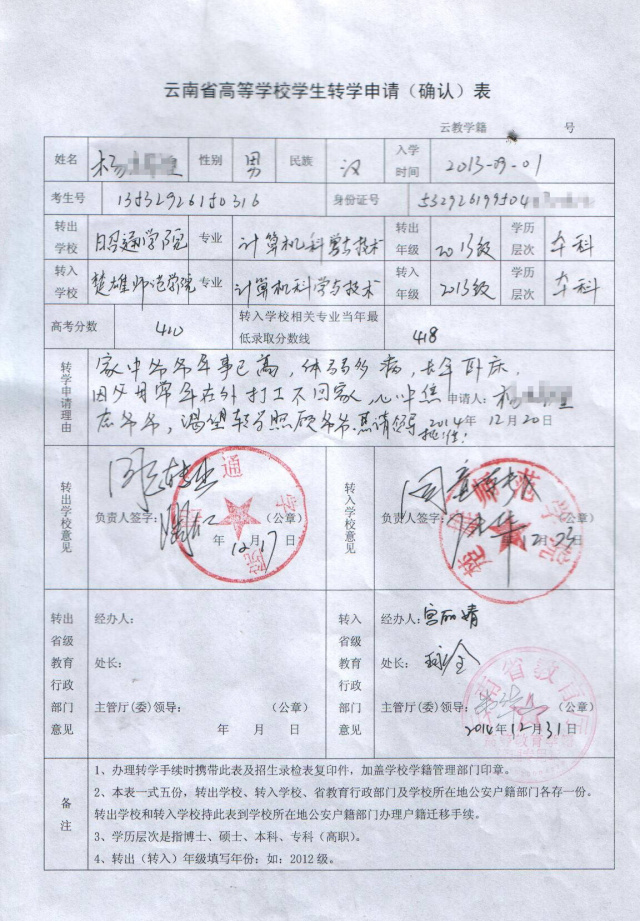 云南省高等学校学生转学申请（确认）表
云教学籍 号
姓名 杨 性别 男 民族 汉 入学时间 2013-09-01
考生号 13532926150316 身份证号 532926199504
转出学校 昭通学院 专业 计算机科学与技术 转出年级 2013级 学历层次 本科
转入学校 楚雄师范学院 专业 计算机科学与技术 转入年级 2013级 学历层次 本科
高考分数 410 转入学校相关专业当年最低录取分数线 418
转学申请理由
家中爷爷年事已高，体弱多病，长年卧床，
因父母常年在外打工不回家，心中焦
虑爷爷，渴望转学照顾爷爷，恳请领导
批准！
申请人：杨
2014年 12月20日
转出学校意见
同意转出
负责人签字： （公章）
年12月17日
通 学 院
转入学校意见
同意
负责人签字： （公章）
12月23日
楚雄师范学院
转出省级教育行政部门意见
经办人：
处长：
主管厅(委)领导： （公章）
年 月 日
转入省级教育行政部门意见
经办人：宫丽婧
处长：
主管厅(委)领导： （公章）
2014年12月31日
南省教育厅
备注
1、办理转学手续时携带此表及招生录检表复印件，加盖学校学籍管理部门印章。
2、本表一式五份，转出学校、转入学校、省教育行政部门及学校所在地公安户籍部门各存一份。
转出学校和转入学校持此表到学校所在地公安户籍部门办理户籍迁移手续。
3、学历层次是指博士、硕士、本科、专科（高职）。
4、转出（转入）年级填写年份：如：2012级。